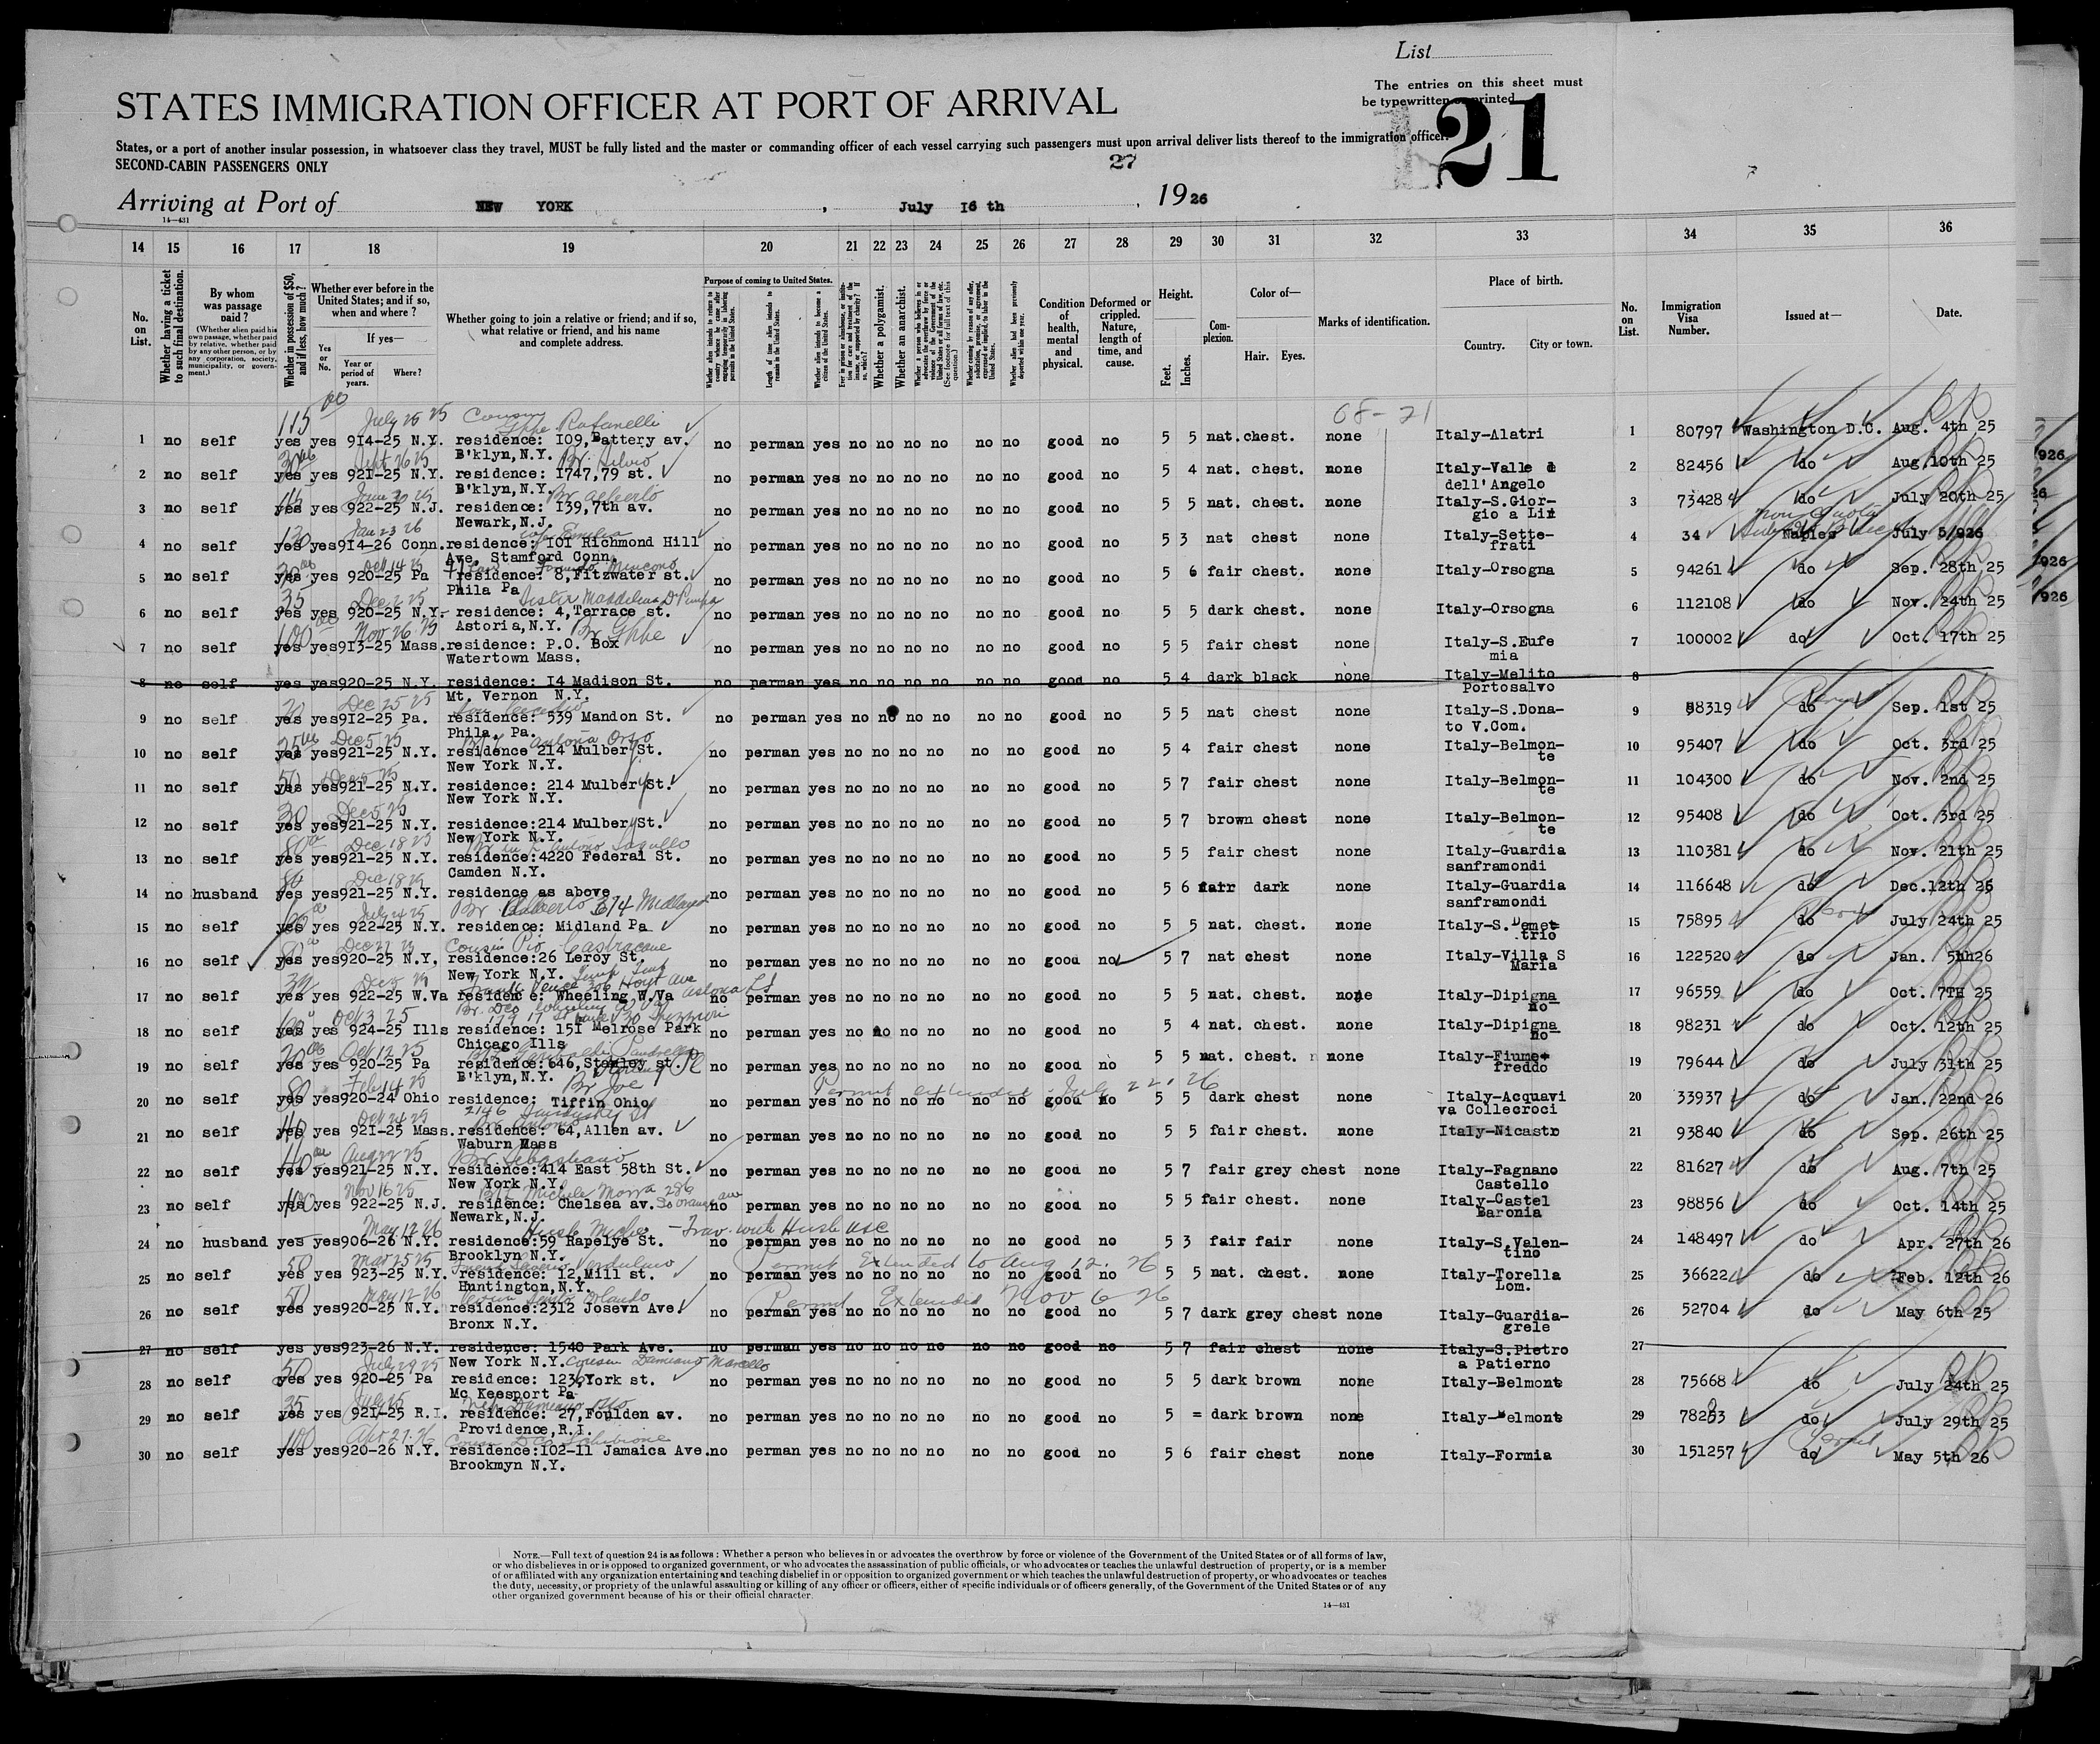 List
The entries on this sheet must
be typewritten or printed.
21
STATES IMMIGRATION OFFICER AT PORT OF ARRIVAL
States, or a port of another insular possession, in whatsoever class they travel, MUST be fully listed and the master or commanding officer of each vessel carrying such passengers must upon arrival deliver lists thereof to the immigration officer.
SECOND-CABIN PASSENGERS ONLY
27
Arriving at Port of NEW YORK, July I6 th, 1926
14—431
14 15 16 17 18 19 20 21 22 23 24 25 26 27 28 29 30 31 32 33 34 35 36
No. on List.
Whether having a ticket to such final destination.
By whom was passage paid?
(Whether alien paid his own passage, whether paid by relative, whether paid by any other person, or by any corporation, society, municipality, or government.)
Whether in possession of $50, and if less, how much?
Whether ever before in the United States; and if so, when and where?
If yes—
Yes or No.
Year or period of years.
Where?
Whether going to join a relative or friend; and if so, what relative or friend, and his name and complete address.
Purpose of coming to United States.
Length of time alien intends to remain in the United States.
Whether alien intends to become a citizen of the United States.
Whether a polygamist.
Whether an anarchist.
Condition of health, mental and physical.
Deformed or crippled. Nature, length of time, and cause.
Height.
Feet. Inches.
Complexion.
Color of—
Hair. Eyes.
Marks of identification.
Place of birth.
Country. City or town.
No. on List.
Immigration Visa Number.
Issued at—
Date.
68-21
115 July 25 25 Cousin Rafanelli
1 no self yes yes 9I4-25 N.Y. residence: IO9, Battery av. no perman yes no no no no no no good no 5 5 nat. chest. none Italy-Alatri 1 80797 Washington D.C. Aug. 4th 25
B'klyn, N.Y. Br. Silvio
2 no self yes yes 92I-25 N.Y. residence: I747,79 st. no perman yes no no no no no no good no 5 4 nat. chest. none Italy-Valle d 2 82456 do Aug.10th 25
B'klyn, N.Y. Br Alberto dell'Angelo
3 no self yes yes 922-25 N.J. residence: I39,7th av. no perman yes no no no no no no good no 5 5 nat. chest. none Italy-S.Gior- 3 73428 do July 20th 25
Newark, N.J. gio a Lir
120 Jan 23 26
4 no self yes yes9I4-26 Conn. residence: IOI Richmond Hill no perman yes no no no no no no good no 5 3 nat chest none Italy-Sette- 4 34 Naples July 5/926
Ave. Stamford Conn. frati
5 no self yes yes 920-25 Pa residence: 8,Fitzwater st. no perman yes no no no no no no good no 5 6 fair chest. none Italy-Orsogna 5 94261 do Sep. 28th 25
Phila Pa
35 Dec 2 25 Sister Maddalena
6 no self yes yes 920-25 N.Y. residence: 4,Terrace st. no perman yes no no no no no no good no 5 5 dark chest. none Italy-Orsogna 6 112108 do Nov. 24th 25
Astoria,N.Y. Br Gppe
100 Nov 26 25
7 no self yes yes9I3-25 Mass. residence: P.O. Box no perman yes no no no no no no good no 5 5 fair chest none Italy-S.Eufe 7 100002 do Oct. 17th 25
Watertown Mass. mia
8 no self yes yes920-25 N.Y. residence: I4 Madison St. no perman yes no no no no no no good no 5 4 dark black none Italy-Melito 8
Mt. Vernon N.Y. Portosalvo
Dec 25 25
9 no self yes yes9I2-25 Pa. residence: 539 Mandon St. no perman yes no no no no no no good no 5 5 nat chest none Italy-S.Dona- 9 88319 do Sep. 1st 25
Phila. Pa. to V.Com.
Dec 5 25
10 no self yes yes92I-25 N.Y. residence 214 Mulbery St. no perman yes no no no no no no good no 5 4 fair chest none Italy-Belmon- 10 95407 do Oct. 3rd 25
New York N.Y. te
50
11 no self yes yes92I-25 N.Y. residence: 214 Mulbery St. no perman yes no no no no no no good no 5 7 fair chest none Italy-Belmon- 11 104300 do Nov. 2nd 25
New York N.Y. te
30 Dec 5 25
12 no self yes yes92I-25 N.Y. residence:214 Mulbery St. no perman yes no no no no no no good no 5 7 brown chest none Italy-Belmon- 12 95408 do Oct. 3rd 25
New York N.Y. te
Dec 18 25
13 no self yes yes92I-25 N.Y. residence:4220 Federal St. no perman yes no no no no no no good no 5 5 fair chest none Italy-Guardia 13 110381 do Nov. 21th 25
Camden N.Y. sanframondi
14 no husband yes yes92I-25 N.Y. residence as above no perman yes no no no no no no good no 5 6 fair dark none Italy-Guardia 14 116648 do Dec.12th 25
sanframondi
July 24 25
15 no self yes yes 922-25 N.Y. residence: Midland Pa no perman yes no no no no no no good no 5 5 nat. chest. none Italy-S.Demet 15 75895 do July 24th 25
Cousin Pio Castracane trio
16 no self yes yes920-25 N.Y, residence:26 Leroy St. no perman yes no no no no no no good no 5 7 nat chest none Italy-Villa S 16 122520 do Jan. 5th26
New York N.Y. Maria
17 no self yes yes 922-25 W.Va residence: Wheeling W.Va no perman yes no no no no no no good no 5 5 nat. chest. none Italy-Dipigna 17 96559 do Oct. 7TH 25
no
Oct 3 25
18 no self yes yes 924-25 Ills residence: I5I Melrose Park no perman yes no no no no no no good no 5 4 nat. chest. none Italy-Dipigna 18 98231 do Oct. 12th 25
Chicago Ills no
Oct 12 25
19 no self yes yes 920-25 Pa residence:646, st. no perman yes no no no no no no good no 5 5 nat. chest. none Italy-Fiume 19 79644 do July 31th 25
B'klyn,N.Y. Br Joe freddo
80 Feb 14 25 Permit extended July 22. 26
20 no self yes yes920-24 Ohio residence: Tiffin Ohio no perman yes no no no no no no good no 5 5 dark chest none Italy-Acquavi 20 33937 do Jan. 22nd 26
2146 Sandusky St va Collecroci
21 no self yes yes 92I-25 Mass. residence: 64,Allen av. no perman yes no no no no no no good no 5 5 fair chest. none Italy-Nicastr 21 93840 do Sep. 26th 25
Waburn Mass
Aug 22 25 Br Sebastiano
22 no self yes yes92I-25 N.Y. residence:414 East 58th St. no perman yes no no no no no no good no 5 7 fair grey chest none Italy-Fagnano 22 81627 do Aug. 7th 25
New York N.Y. Castello
100 Nov 16 25 Michele Morra 286
23 no self yes yes 922-25 N.J. residence: Chelsea av. So Orange ave no perman yes no no no no no no good no 5 5 fair chest. none Italy-Castel 23 98856 do Oct. 14th 25
Newark,N.J. Baronia
May 12 26 Trav. with Husb USC
24 no husband yes yes906-26 N.Y. residence:59 Rapelye St. no perman yes no no no no no no good no 5 3 fair fair none Italy-S.Valen- 24 148497 do Apr. 27th 26
Brooklyn N.Y. tino
50 Mar 25 25 Permit Extended to Aug 12. 26
25 no self yes yes 923-25 N.Y. residence: I2,Mill st. no perman yes no no no no no no good no 5 5 nat. chest. none Italy-Torella 25 36622 do Feb. 12th 26
Huntington,N.Y. Lom.
50 May 12 26 Permit Extended Nov 6 26
26 no self yes yes920-25 N.Y. residence:2312 Josevn Ave. no perman yes no no no no no no good no 5 7 dark grey chest none Italy-Guardia- 26 52704 do May 6th 25
Bronx N.Y. grele
27 no self yes yes923-26 N.Y. residence: 1540 Park Ave. no perman yes no no no no no no good no 5 7 fair chest none Italy-S.Pietro 27
New York N.Y. Cousin Damiano Marcello a Patierno
50 July 29 25
28 no self yes yes 920-25 Pa residence: 1236,York st. no perman yes no no no no no no good no 5 5 dark brown none Italy-Belmont 28 75668 do July 24th 25
Mc Keesport Pa
35 July 25
29 no self yes yes 92I-25 R.I. residence: 27,Foulden av. no perman yes no no no no no no good no 5 = dark brown none Italy-Belmont 29 78253 do July 29th 25
Providence,R.I.
100 Apr 27 26
30 no self yes yes920-26 N.Y. residence:102-11 Jamaica Ave. no perman yes no no no no no no good no 5 6 fair chest none Italy-Formia 30 151257 do May 5th 26
Brookmyn N.Y.
NOTE.—Full text of question 24 is as follows: Whether a person who believes in or advocates the overthrow by force or violence of the Government of the United States or of all forms of law,
or who disbelieves in or is opposed to organized government, or who advocates the assassination of public officials, or who advocates or teaches the unlawful destruction of property, or is a member
of or affiliated with any organization entertaining and teaching disbelief in or opposition to organized government or which teaches the unlawful destruction of property, or who advocates or teaches
the duty, necessity, or propriety of the unlawful assaulting or killing of any officer or officers, either of specific individuals or of officers generally, of the Government of the United States or of any
other organized government because of his or their official character.
14—431